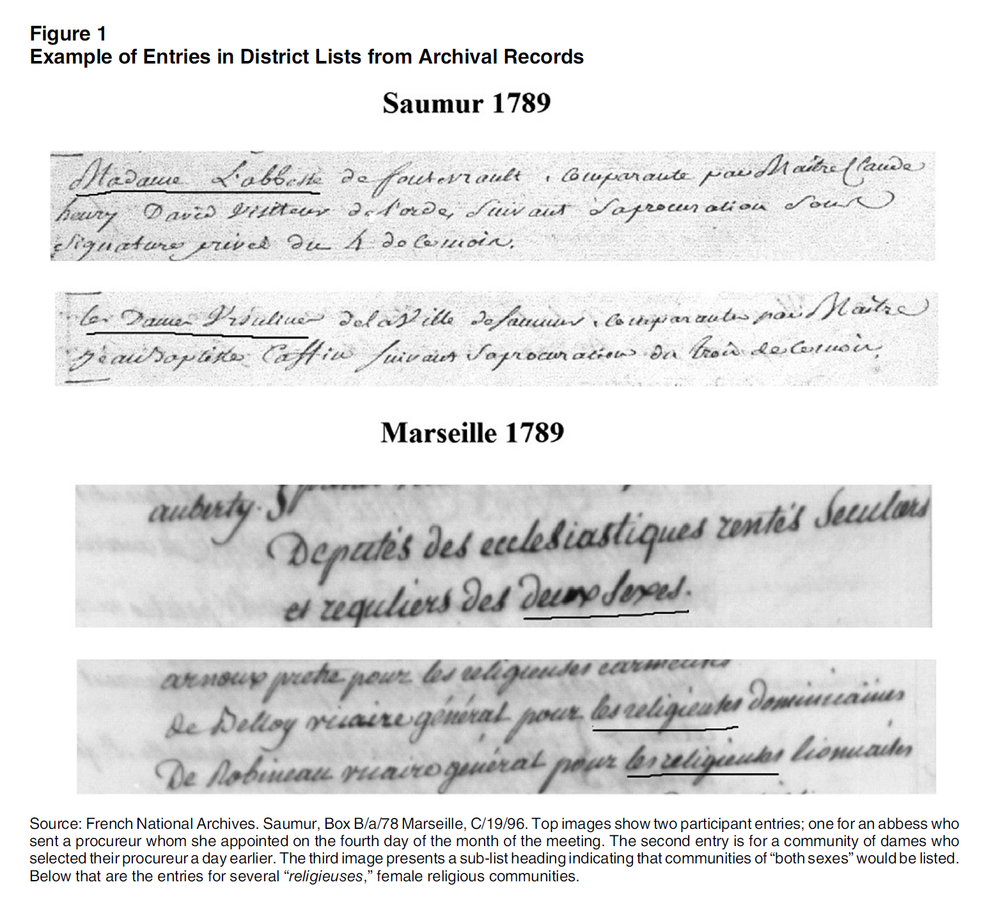 Figure 1
Example of Entries in District Lists from Archival Records
Saumur 1789
Madame L'abbesse de fontevrault, Comparante par Maitre Claude
henry David Visiteur de l'ordre, Suivant Saprocuration Sous
Signature privée du 4 de ce mois.
les Dames Ursulines delaVille de Saumur, Comparantes par Maitre
Jean Baptiste Caffin Suivant Saprocuration du trois de ce mois.
Marseille 1789
auberty.
Deputés des ecclesiastiques rentés Seculiers
et reguliers des deux Sexes.
arnoux pretre pour les religieuses
de Belloy vicaire général pour les religieuses dominicaines
De Robineau vicaire général pour les religieuses lionnaises
Source: French National Archives. Saumur, Box B/a/78 Marseille, C/19/96. Top images show two participant entries; one for an abbess who
sent a procureur whom she appointed on the fourth day of the month of the meeting. The second entry is for a community of dames who
selected their procureur a day earlier. The third image presents a sub-list heading indicating that communities of “both sexes” would be listed.
Below that are the entries for several “religieuses,” female religious communities.